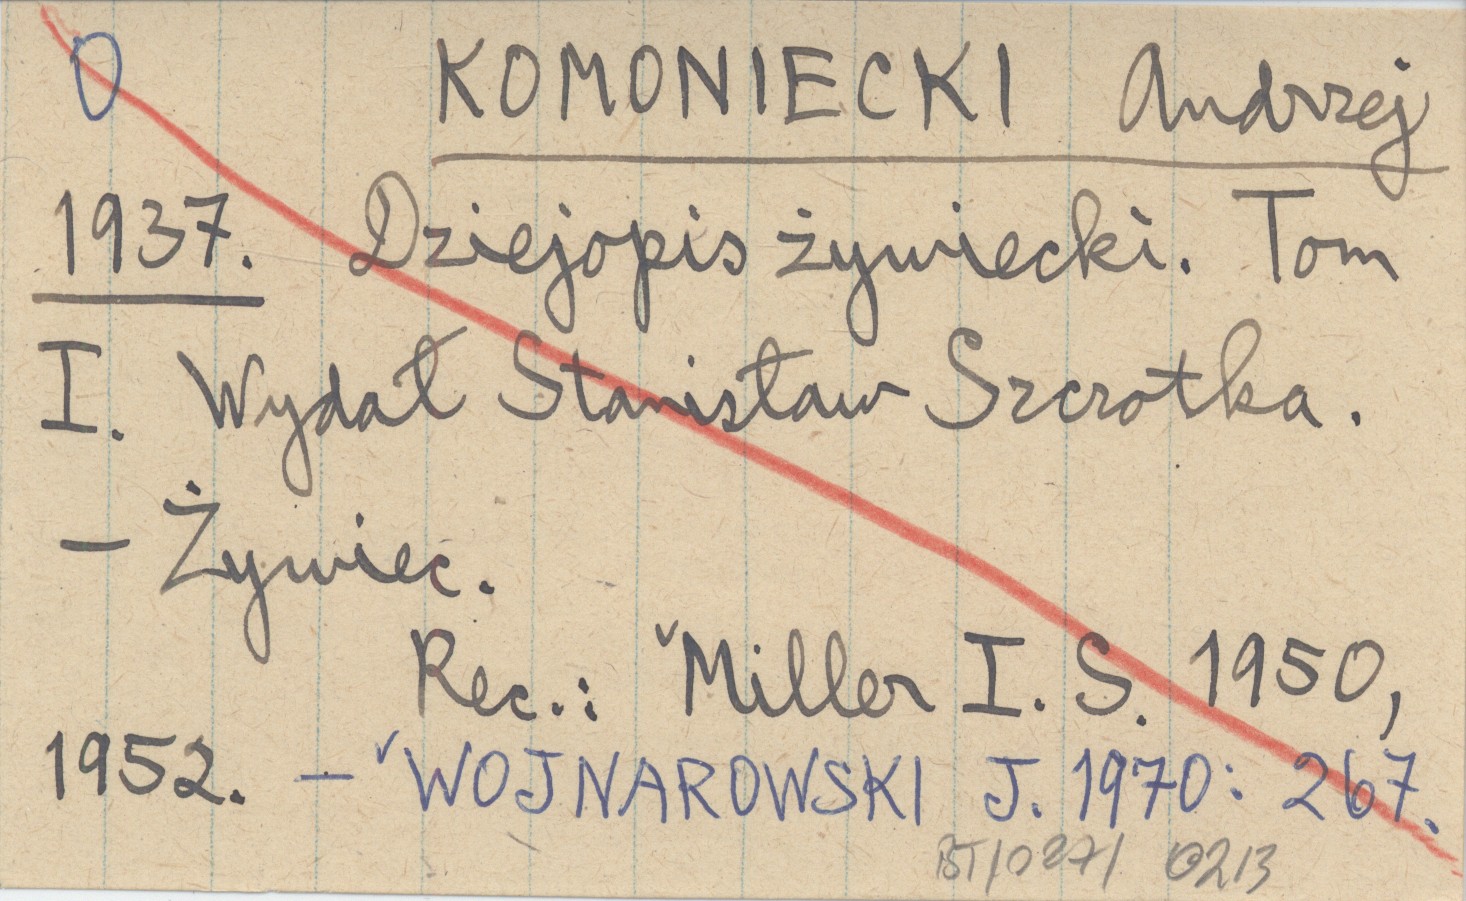 O KOMONIECKI Andrzej
1937. Dziejopis żywiecki. Tom
I. Wydał Stanisław Szczotka.
– Żywiec.
Rec.: ˇMiller I. S. 1950,
1952. – ˇWOJNAROWSKI J. 1970: 267.
BT/027/ 0213